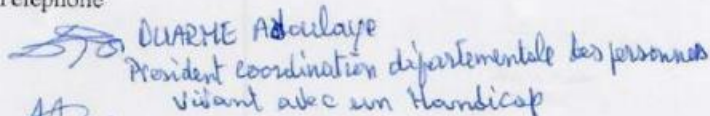 Téléphone
DUARME Abdoulaye
President coordination départementale des personnes
vivant avec un Handicap